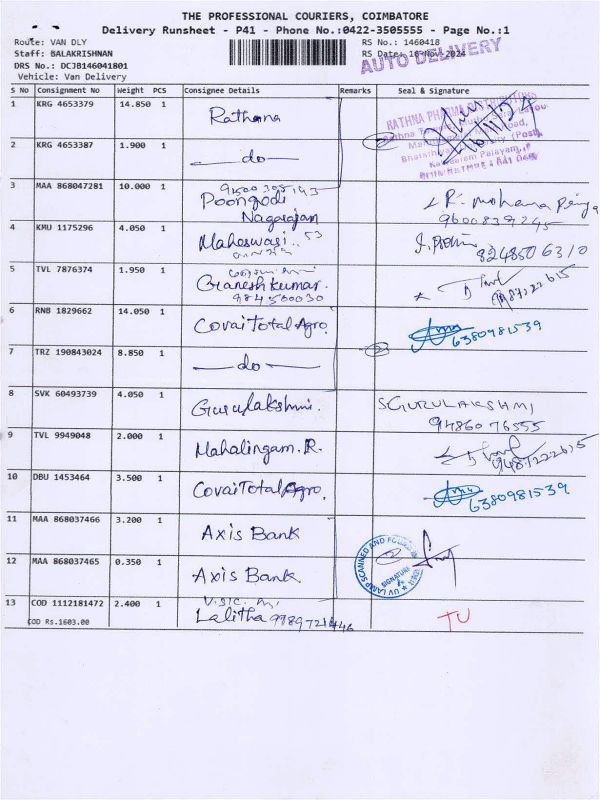 THE PROFESSIONAL COURIERS, COIMBATORE
Delivery Runsheet - P41 - Phone No.:0422-3505555 - Page No.:1
Route: VAN DLY
RS No.: 1460418
Staff: BALAKRISHNAN
RS Date: 16-Nov-2024
DRS No.: DCJB146041801
AUTO DELIVERY
Vehicle: Van Delivery
S No Consignment No Weight PCS Consignee Details Remarks Seal & Signature
1 KRG 4653379 14.850 1 Rathana
RATHNA PHARMA DISTRIBUTORS
2 KRG 4653387 1.900 1 —do—
3 MAA 868047281 10.000 1 Poongodi
Nagarajan
R. Mohana Priya
9600839245
4 KMU 1175296 4.050 1 Maheswari.. 53
8248506310
5 TVL 7876374 1.950 1 Ganeshkumar.
984500030
6 RNB 1829662 14.050 1 Covai Total Agro.
6380981539
7 TRZ 190843024 8.850 1 —do—
8 SVK 60493739 4.050 1 Gurulakshmi.
S GURULAKSHMI
9486076555
9 TVL 9949048 2.000 1 Mahalingam. R.
9487222615
10 DBU 1453464 3.500 1 Covai Total Agro.
6380981539
11 MAA 868037466 3.200 1 Axis Bank
UV LAMP SCANNED AND FOUND
SIGNATURE
12 MAA 868037465 0.350 1 Axis Bank.
13 COD 1112181472 2.400 1
Lalitha
TU
COD Rs.1603.00